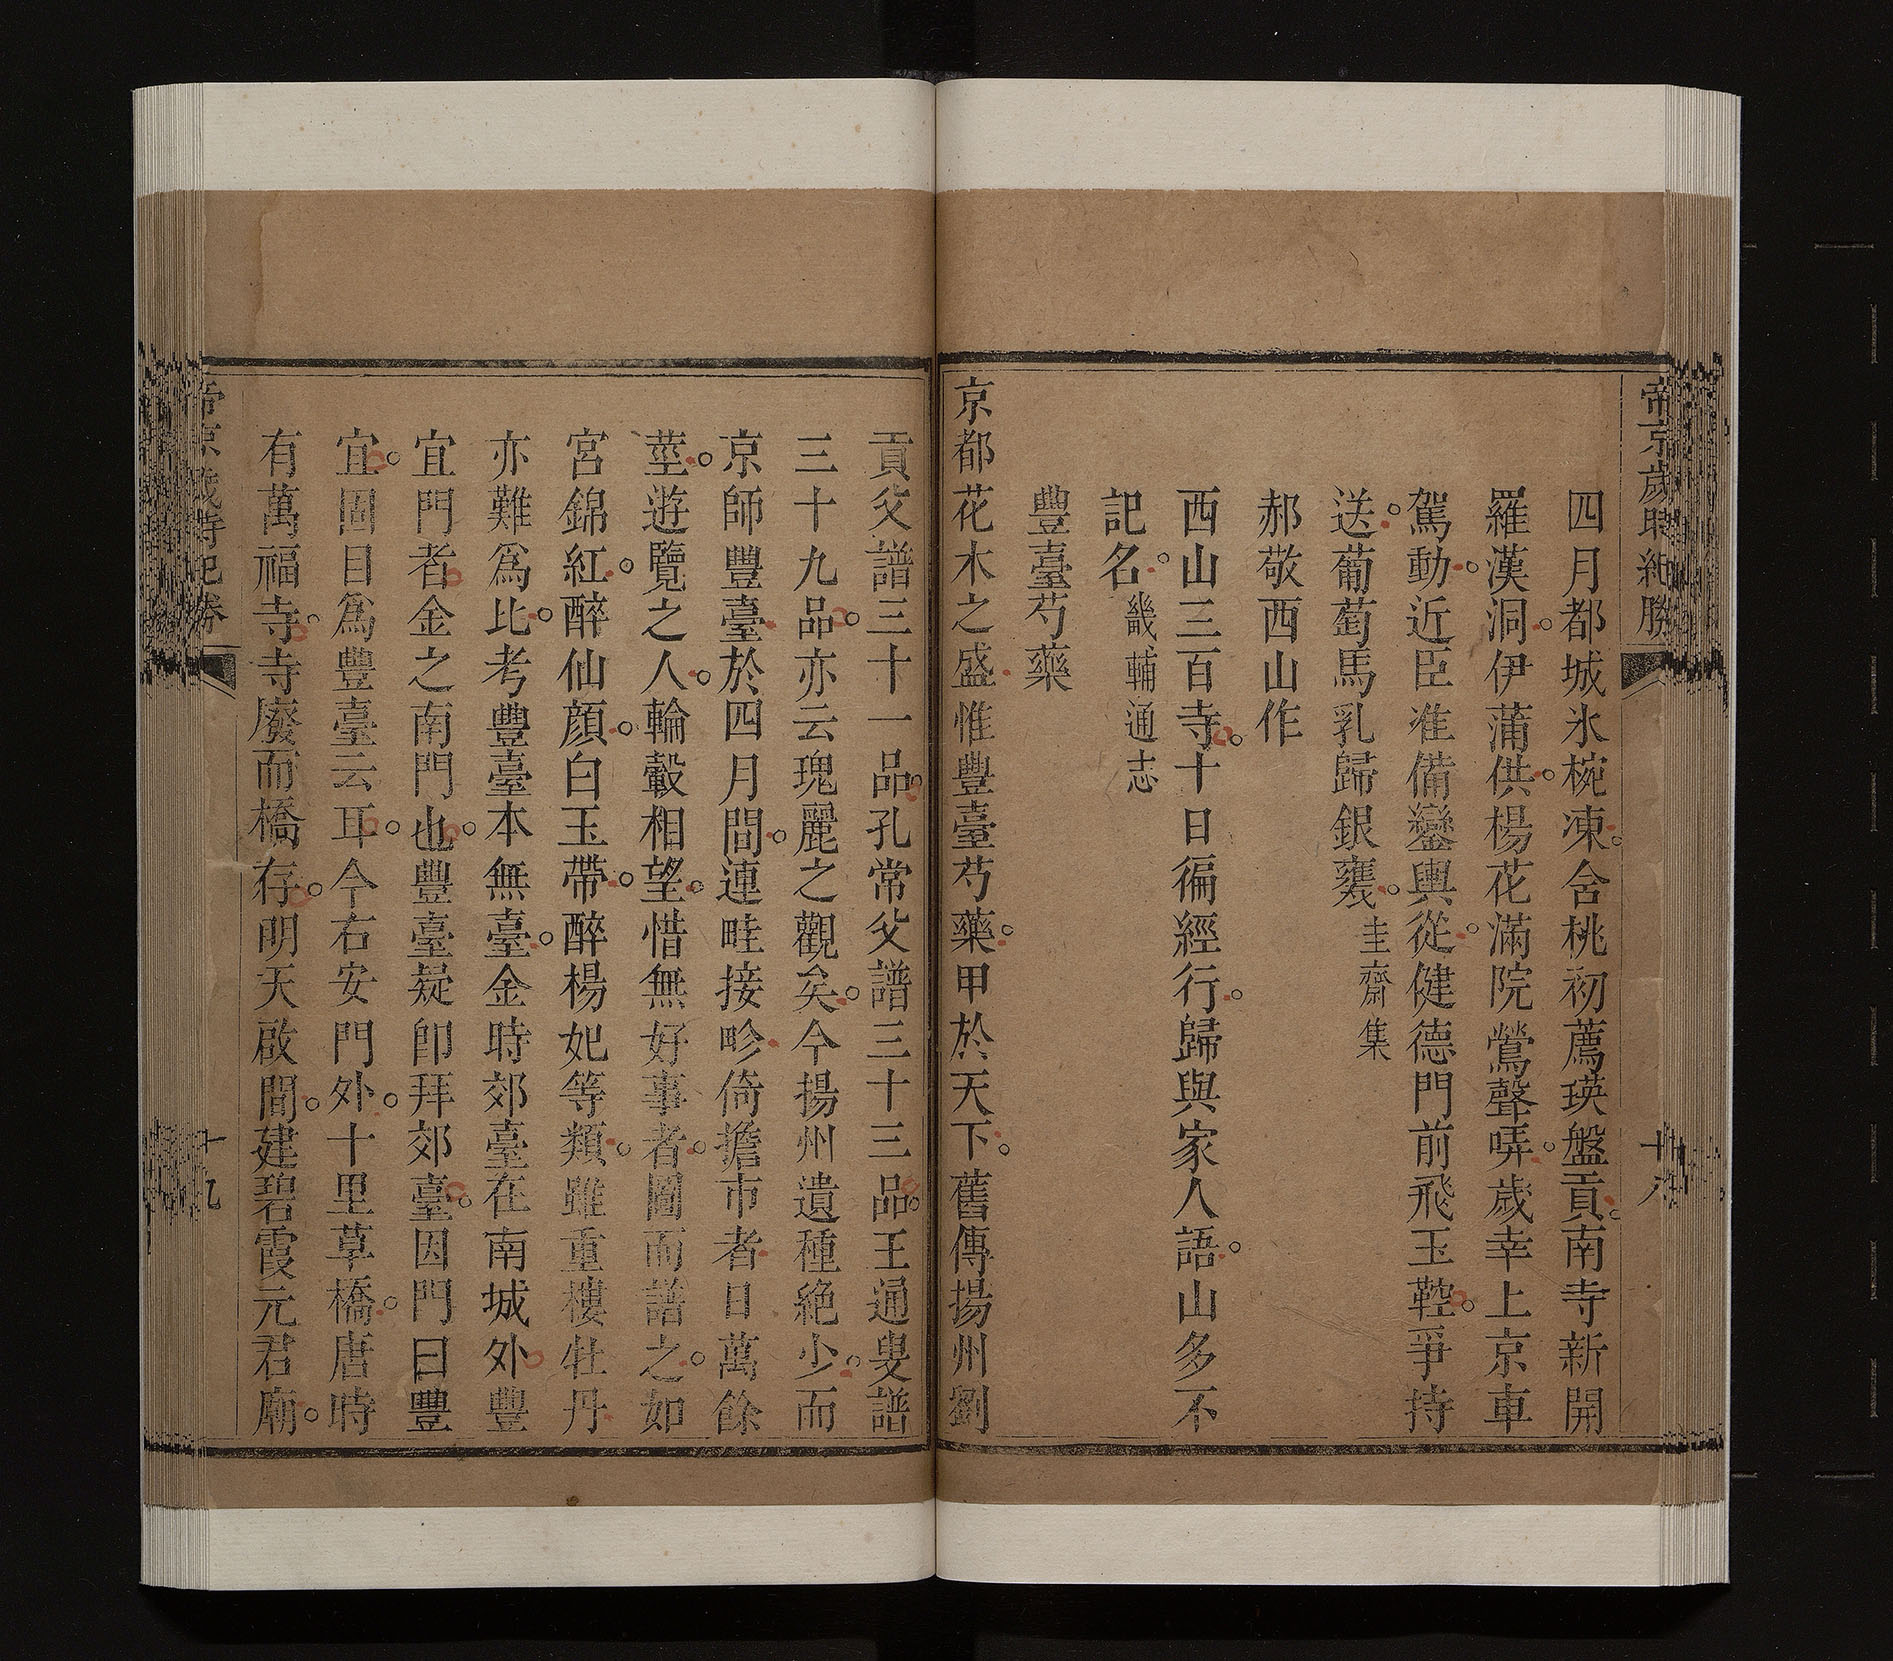 帝京歲時紀勝
十八
四月都城氷椀凍。含桃初薦瑛盤貢。南寺新開
羅漢洞。伊蒲供。楊花滿院鶯聲哢。歲幸上京車
駕動。近臣准備鑾輿從。健德門前飛玉鞚。爭持
送。葡萄馬乳歸銀甕。圭齋集
郝敬西山作
西山三百寺。十日徧經行。歸與家人語。山多不
記名。畿輔通志
豐臺芍藥
京都花木之盛惟豐臺芍藥。甲於天下。舊傳揚州劉
貢父譜三十一品。孔常父譜三十三品。王通叟譜
三十九品。亦云瑰麗之觀矣。今揚州遺種絶少。而
京師豐臺於四月間。連畦接畛倚擔市者日萬餘
莖。遊覽之人。輪轂相望。惜無好事者。圖而譜之。如
宮錦紅。醉仙顔。白玉帶。醉楊妃等類。雖重樓牡丹
亦難爲比。考豐臺本無臺。金時郊臺在南城外豐
宜門者金之南門也。豐臺疑卽拜郊臺。因門曰豐
宜。固目爲豐臺云耳。今右安門外。十里草橋。唐時
有萬福寺。寺廢而橋存。明天啟間。建碧霞元君廟。
帝京歲時紀勝
十九